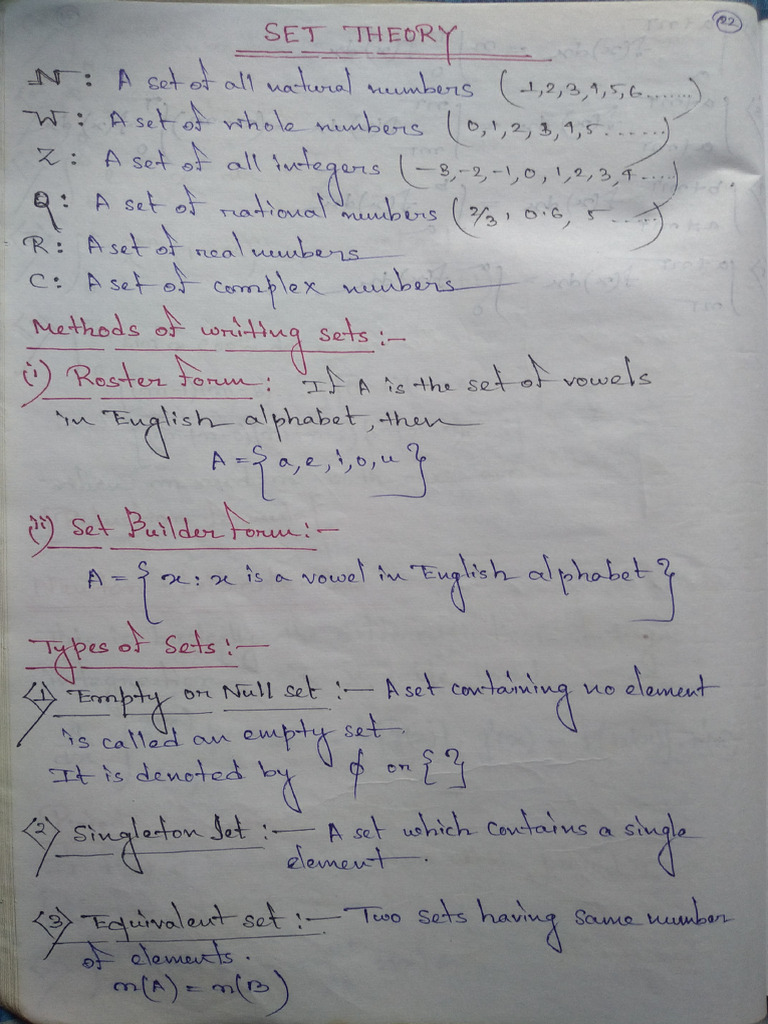 22
SET THEORY
N : A set of all natural numbers (1,2,3,4,5,6.......)
W : A set of whole numbers (0,1,2,3,4,5.......)
Z : A set of all integers (-3,-2,-1,0,1,2,3,4.....)
Q : A set of rational numbers (2/3, 0.6, 5 ......)
R : A set of real numbers
C : A set of complex numbers
Methods of writing sets :-
(i) Roster form : If A is the set of vowels
in English alphabet, then
A = { a, e, i, o, u }
(ii) Set Builder form :-
A = { x : x is a vowel in English alphabet }
Types of Sets :-
<1> Empty or Null set :- A set containing no element
is called an empty set.
It is denoted by ϕ or { }
<2> Singleton Set :- A set which contains a single
element.
<3> Equivalent set :- Two sets having same number
of elements.
n(A) = n(B)